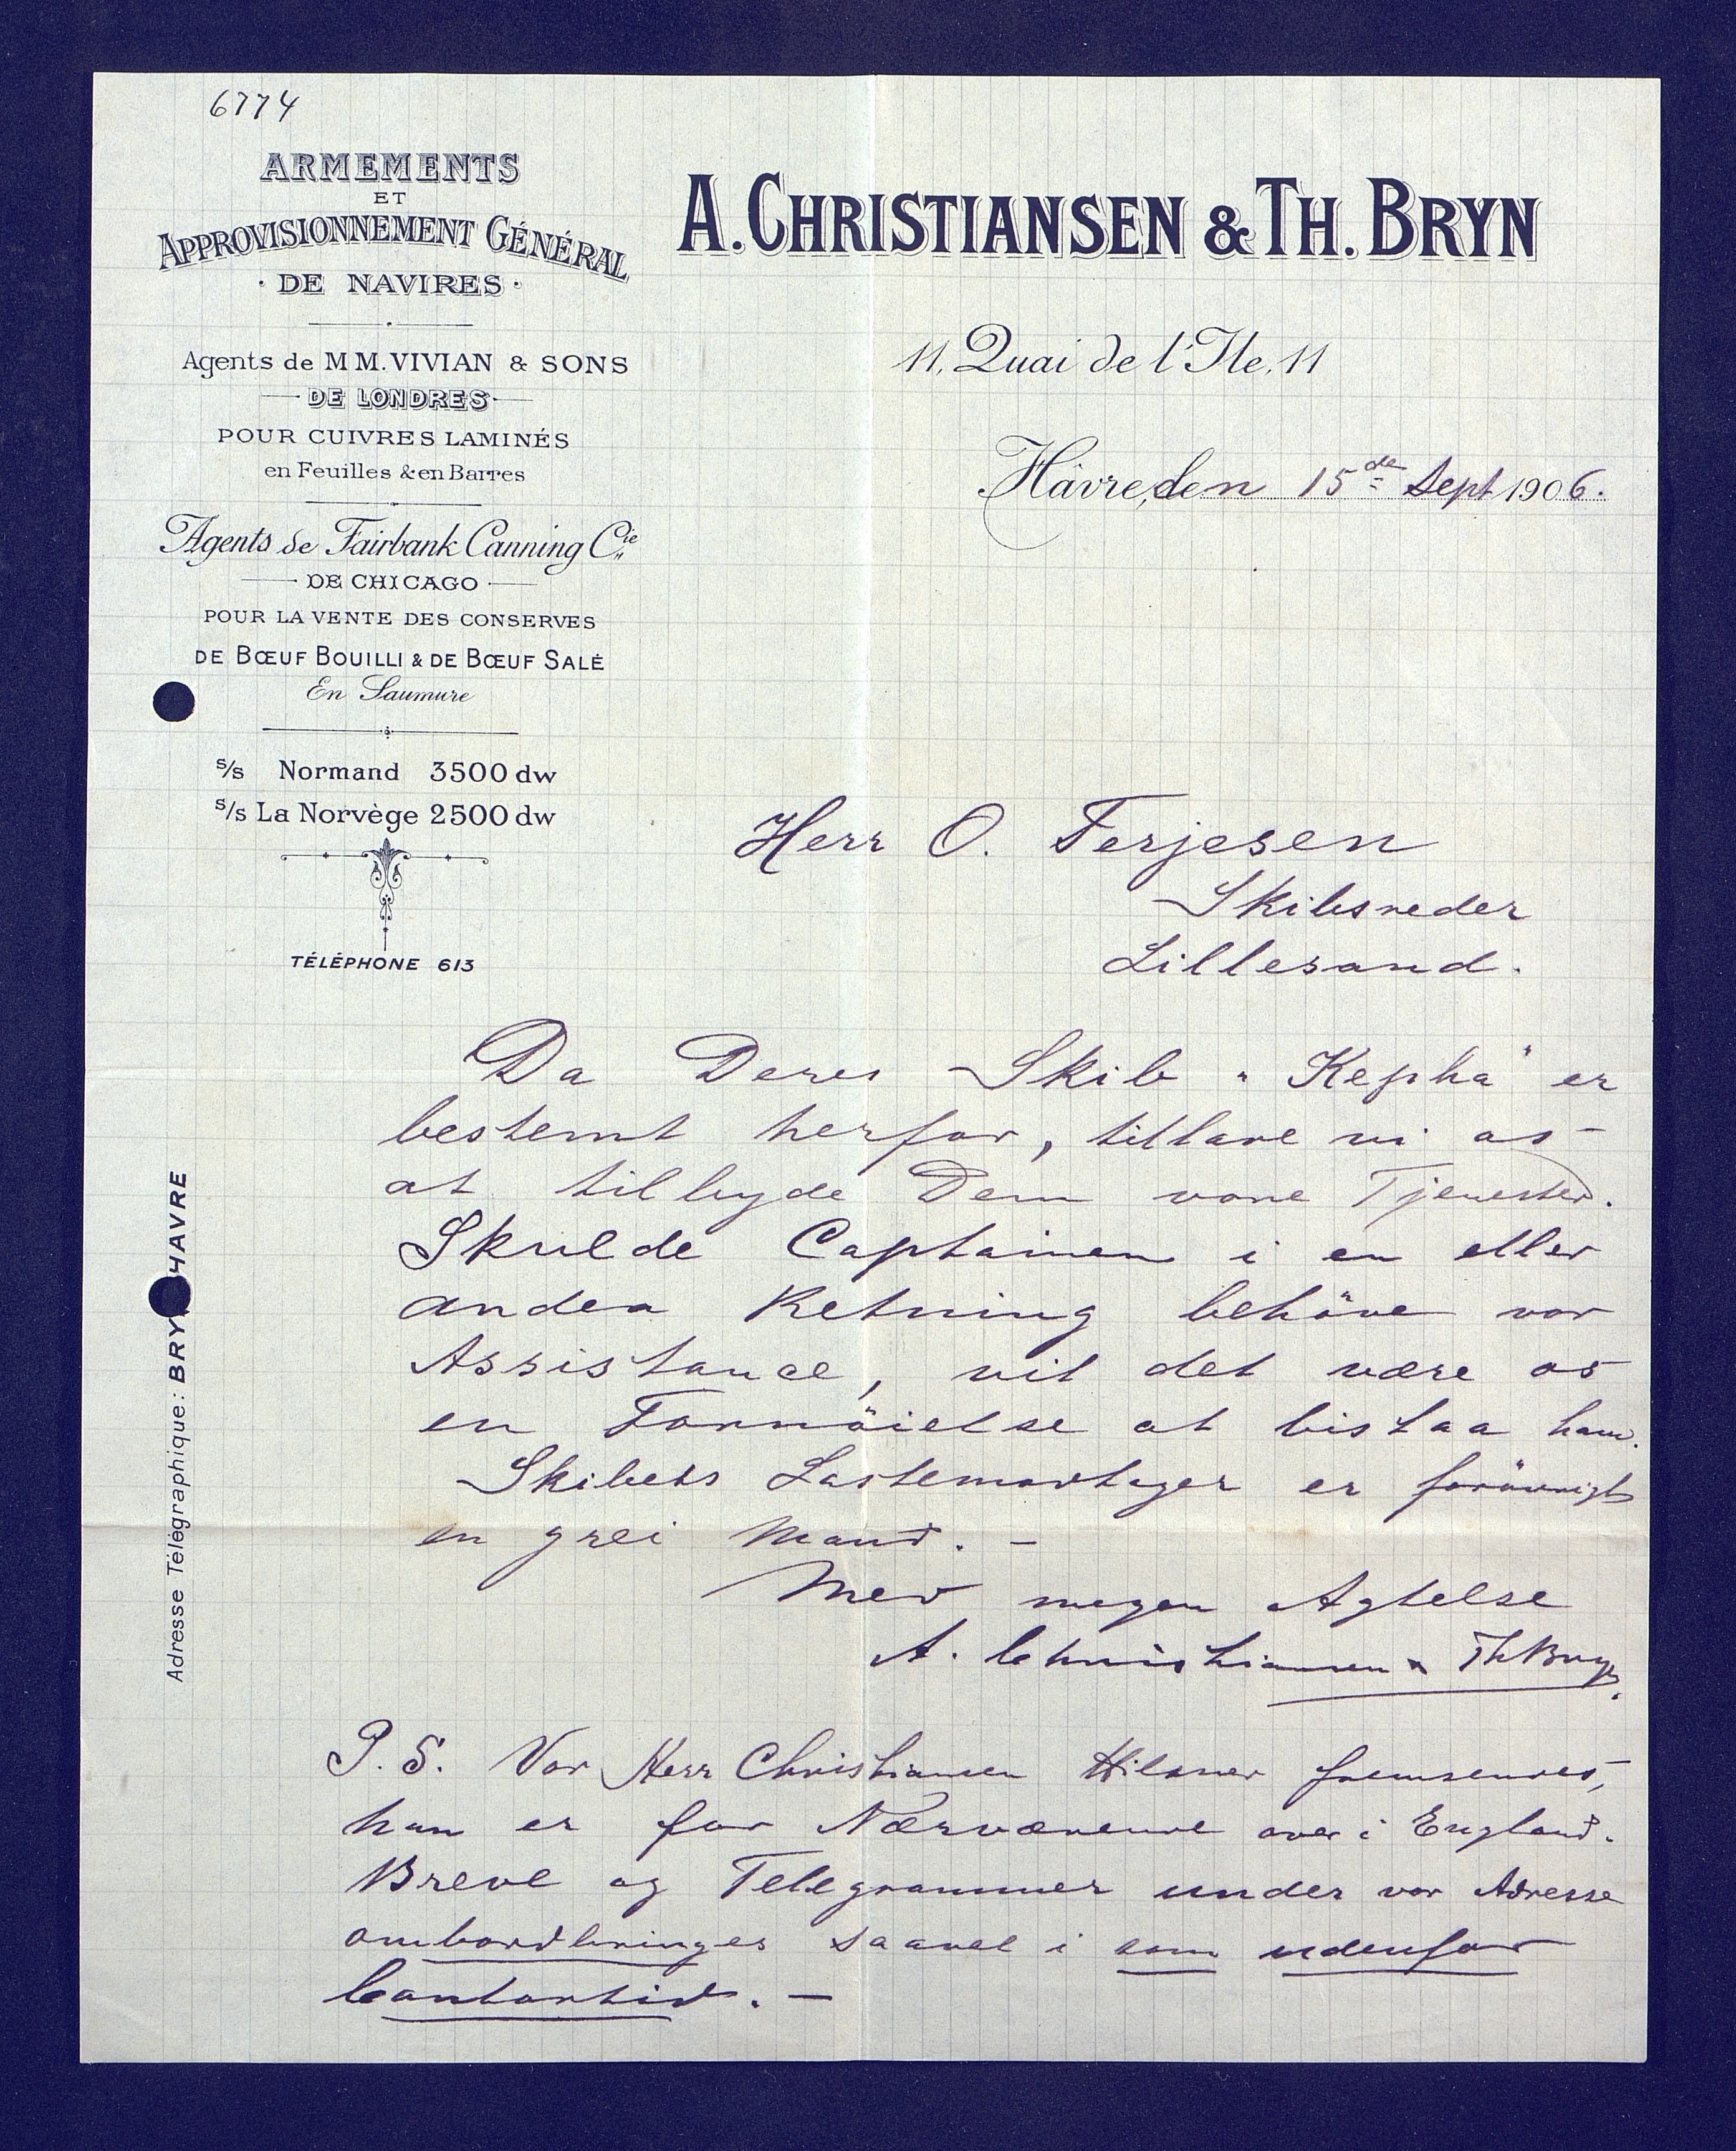 6774
ARMEMENTS
ET
APPROVISIONNEMENT GÉNÉRAL
· DE NAVIRES ·
Agents de MM. VIVIAN & SONS
DE LONDRES
POUR CUIVRES LAMINÉS
en Feuilles & en Barres
Agents de Fairbank Canning Cie
DE CHICAGO
POUR LA VENTE DES CONSERVES
DE BŒUF BOUILLI & DE BŒUF SALÉ
En Saumure
s/s Normand 3500 dw
s/s La Norvège 2500 dw
TÉLÉPHONE 613
Adresse Télégraphique: BRY HAVRE
A. CHRISTIANSEN & TH. BRYN
11, Quai de l'Ile, 11
Hâvre, den 15de Sept 1906.
Herr O. Terjesen
Skibsreder
Lillesand.
Da Deres Skib "Kepha" er
bestemt herfor, tillave vi os
at tilbyde Dem vore Tjenester.
Skulde Captainen i en eller
anden Retning behöve vor
Assistance, vil det være os
en Fornöielse at bistaa ham.
Skibets Lastemodtager er forövrigt
en grei Mand. -
Med megen Agtelse
A. Christiansen & Th Bryn.
P.S. Vor Herr Christiansen Hilsner fremsendes,
han er for Nærværende over i England.
Breve og Telegrammer under vor Adresse
ombordbringes saavel i som udenfor
Contortid. -